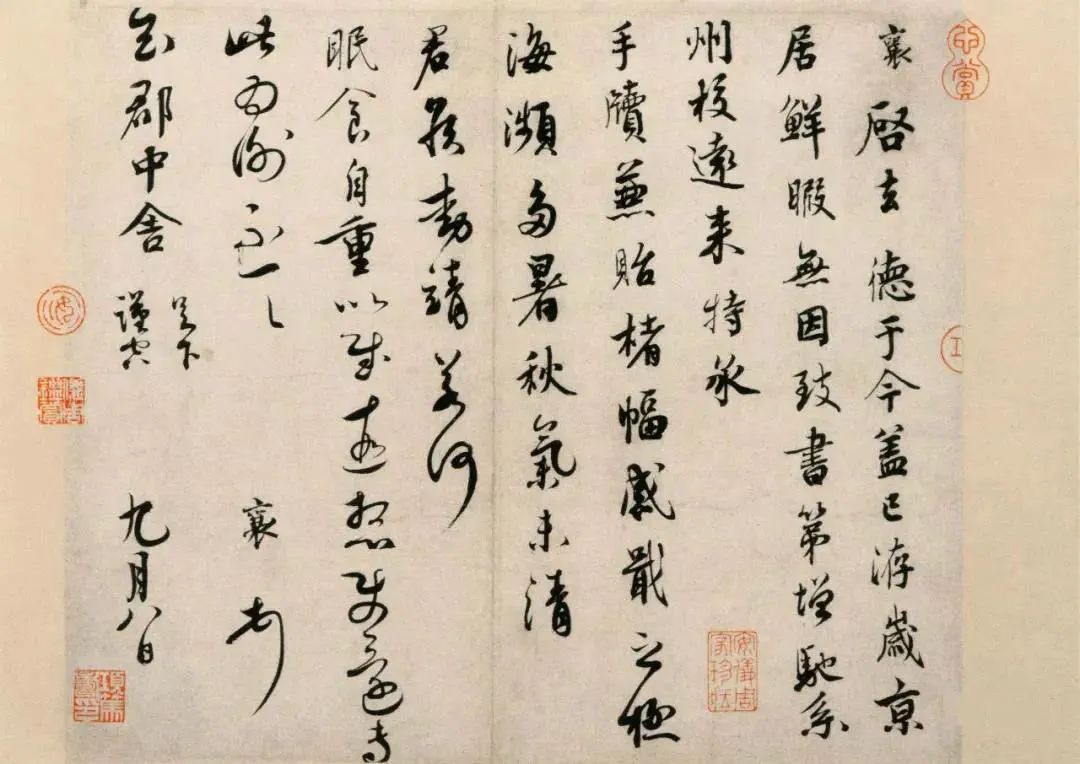 襄啓去德于今盖已洊歲京
居鮮暇無因致書第增馳系
州校遠来特承
手牘兼貽楮幅感戢之極
海瀕多暑秋氣未清
君侯動靖若何
眠食自重以
此為謝不一一 襄 頓首
郡中舍足下謹空 九月八日